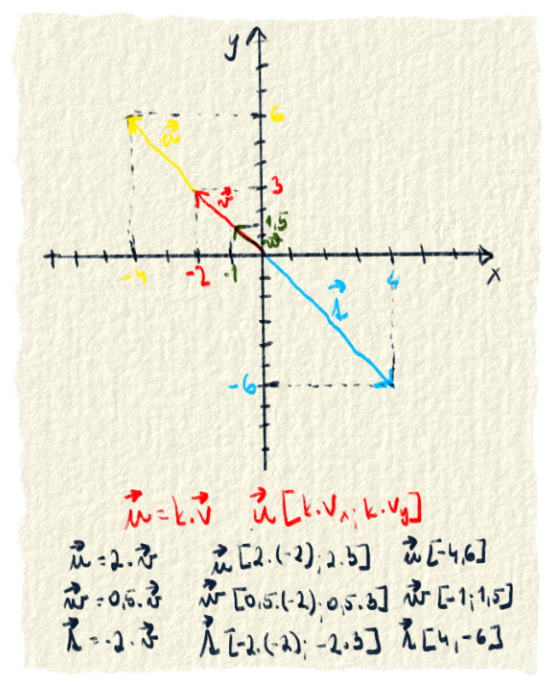 y
6
u⃗
3
v⃗
1,5
w⃗
-4 -2 -1 4 x
r⃗
-6
u⃗=k.v⃗ u⃗[k.vₓ; k.vᵧ]
u⃗=2.v⃗ u⃗[2.(-2); 2.3] u⃗[-4,6]
w⃗=0,5.v⃗ w⃗[0,5.(-2); 0,5.3] w⃗[-1; 1,5]
r⃗=-2.v⃗ r⃗[-2.(-2); -2.3] r⃗[4,-6]